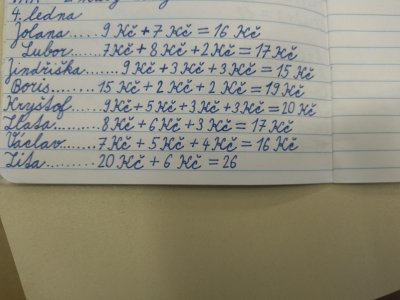 4. ledna
Jolana..... 9 Kč + 7 Kč = 16 Kč
Lubor...... 7 Kč + 8 Kč + 2 Kč = 17 Kč
Jindřiška....... 9 Kč + 3 Kč + 3 Kč = 15 Kč
Boris...... 15 Kč + 2 Kč + 2 Kč = 19 Kč
Kryštof....... 9 Kč + 5 Kč + 3 Kč + 3 Kč = 20 Kč
Zlata......... 8 Kč + 6 Kč + 3 Kč = 17 Kč
Václav....... 7 Kč + 5 Kč + 4 Kč = 16 Kč
Zita......... 20 Kč + 6 Kč = 26